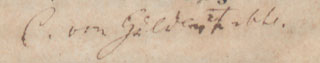 C. von Güldenstubbe.